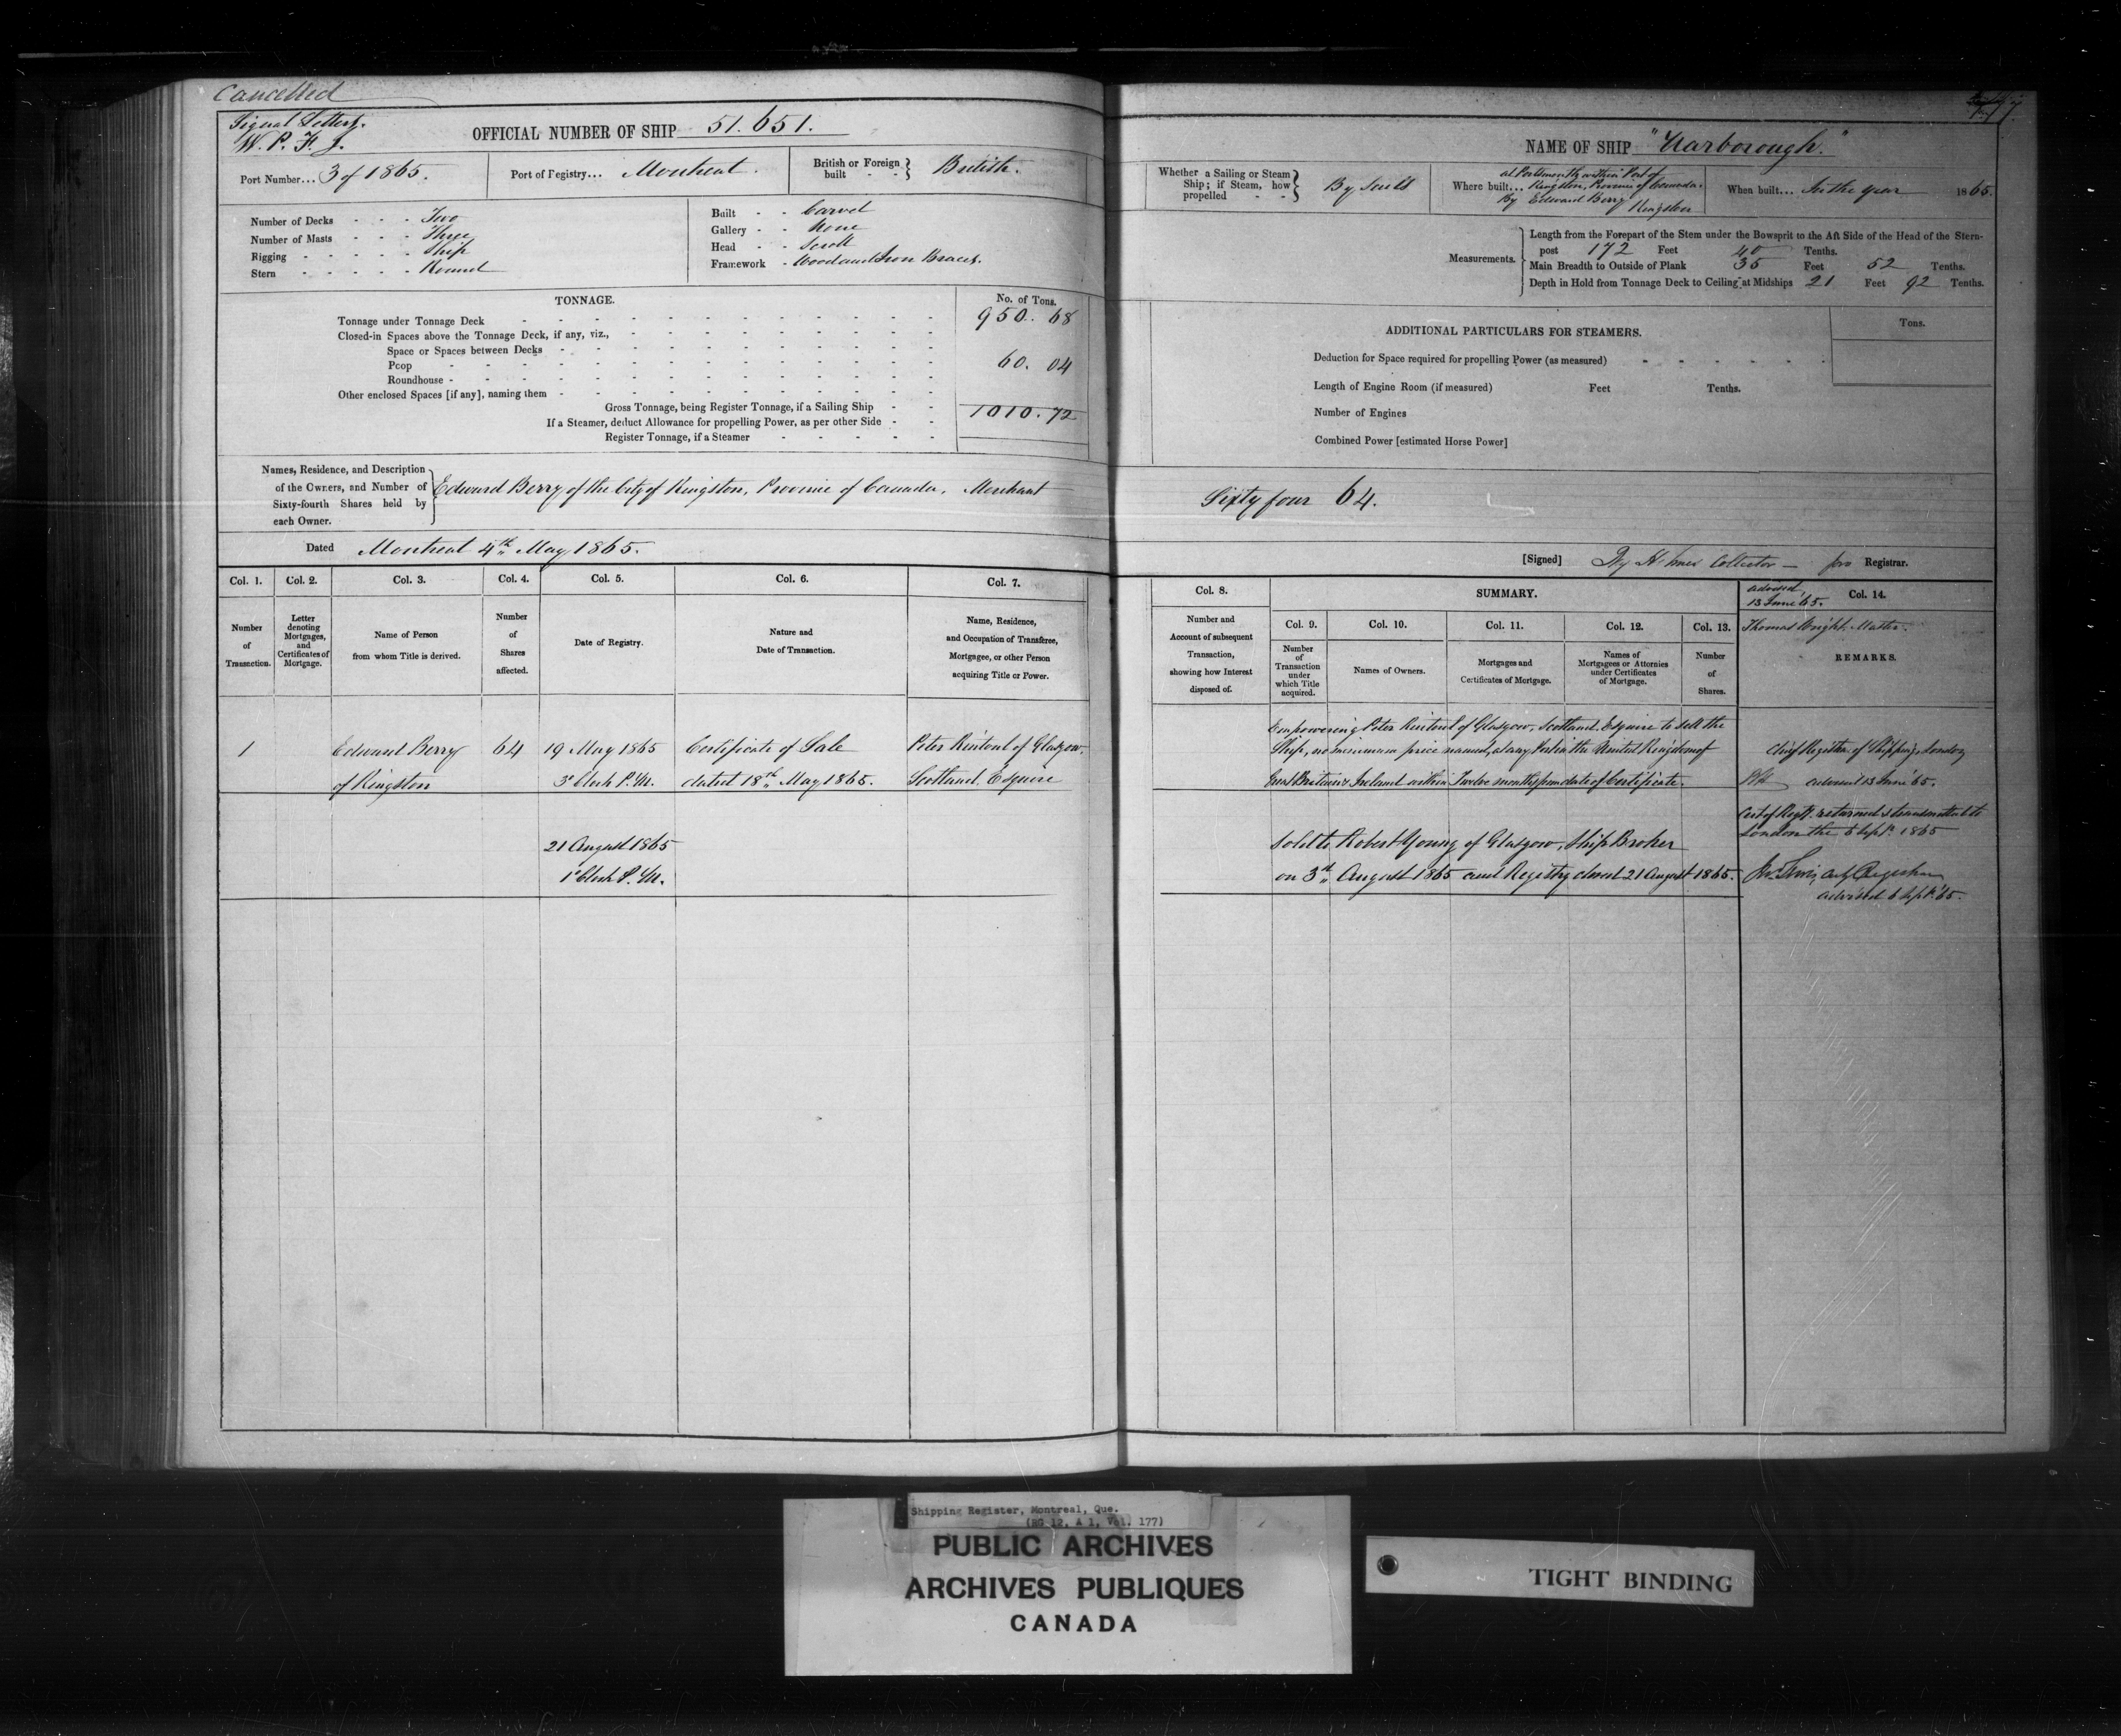 Cancelled
Signal Letters.
W. P. F. J.
OFFICIAL NUMBER OF SHIP 51.651.
Port Number... 3 of 1865.
Port of Registry... Montreal.
British or Foreign built - - } British.
Number of Decks - - - Two
Number of Masts - - - Three
Rigging - - - - - Ship
Stern - - - - - Round
Built - - Carvel
Gallery - - None
Head - - Scroll
Framework - Wood and Iron Braces.
TONNAGE.
No. of Tons.
Tonnage under Tonnage Deck 950. 68
Closed-in Spaces above the Tonnage Deck, if any, viz.,
Space or Spaces between Decks
Poop 60. 04
Roundhouse
Other enclosed Spaces [if any], naming them
Gross Tonnage, being Register Tonnage, if a Sailing Ship 1010. 72
If a Steamer, deduct Allowance for propelling Power, as per other Side
Register Tonnage, if a Steamer
Names, Residence, and Description
of the Owners, and Number of
Sixty-fourth Shares held by
each Owner.
Edward Berry of the City of Kingston, Province of Canada, Merchant
Dated Montreal 4th May 1865.
Col. 1.
Col. 2.
Col. 3.
Col. 4.
Col. 5.
Col. 6.
Col. 7.
Number
of
Transaction.
Letter
denoting
Mortgages,
and
Certificates of
Mortgage.
Name of Person
from whom Title is derived.
Number
of
Shares
affected.
Date of Registry.
Nature and
Date of Transaction.
Name, Residence,
and Occupation of Transferee,
Mortgagee, or other Person
acquiring Title or Power.
1
Edward Berry
of Kingston
64
19 May 1865
3 o'clock P.M.
Certificate of Sale
dated 18th May 1865.
Peter Rintoul of Glasgow,
Scotland, Esquire
21 August 1865
1 o'clock P.M.
NAME OF SHIP "Yarborough."
Whether a Sailing or Steam
Ship; if Steam, how
propelled - -
By Sails
at Portsmouth within Port of
Where built... Kingston, Province of Canada.
By Edward Berry
Kingston
When built... In the year 1865.
Measurements.
Length from the Forepart of the Stem under the Bowsprit to the Aft Side of the Head of the Stern-
post 172 Feet 40 Tenths.
Main Breadth to Outside of Plank 35 Feet 52 Tenths.
Depth in Hold from Tonnage Deck to Ceiling at Midships 21 Feet 92 Tenths.
ADDITIONAL PARTICULARS FOR STEAMERS.
Tons.
Deduction for Space required for propelling Power (as measured)
Length of Engine Room (if measured) Feet Tenths.
Number of Engines
Combined Power [estimated Horse Power]
Sixty four 64.
[Signed] Collector — pro Registrar.
Col. 8.
SUMMARY.
advised
13 June '65.
Col. 14.
Number and
Account of subsequent
Transaction,
showing how Interest
disposed of.
Col. 9.
Col. 10.
Col. 11.
Col. 12.
Col. 13.
Thomas Wright. Master.
Number
of
Transaction
under
which Title
acquired.
Names of Owners.
Mortgages and
Certificates of Mortgage.
Names of
Mortgagees or Attornies
under Certificates
of Mortgage.
Number
of
Shares.
REMARKS.
Empowering Peter Rintoul of Glasgow, Scotland. Esquire to sell the
Ship, no minimum price named, at any Port in the United Kingdom of
Great Britain & Ireland within Twelve months from date of Certificate.
Chief Registrar of Shipping, London
advised 13 June '65.
Sold to Robert Young of Glasgow, Ship Broker
on 3rd August 1865 and Registry closed 21 August 1865.
Cert of Regy. returned & transmitted to
London the 6 Sept. 1865
advised 6 Sept. '65.
Shipping Register, Montreal, Que.
(RG 12, A 1, Vol. 177)
PUBLIC ARCHIVES
ARCHIVES PUBLIQUES
CANADA
TIGHT BINDING